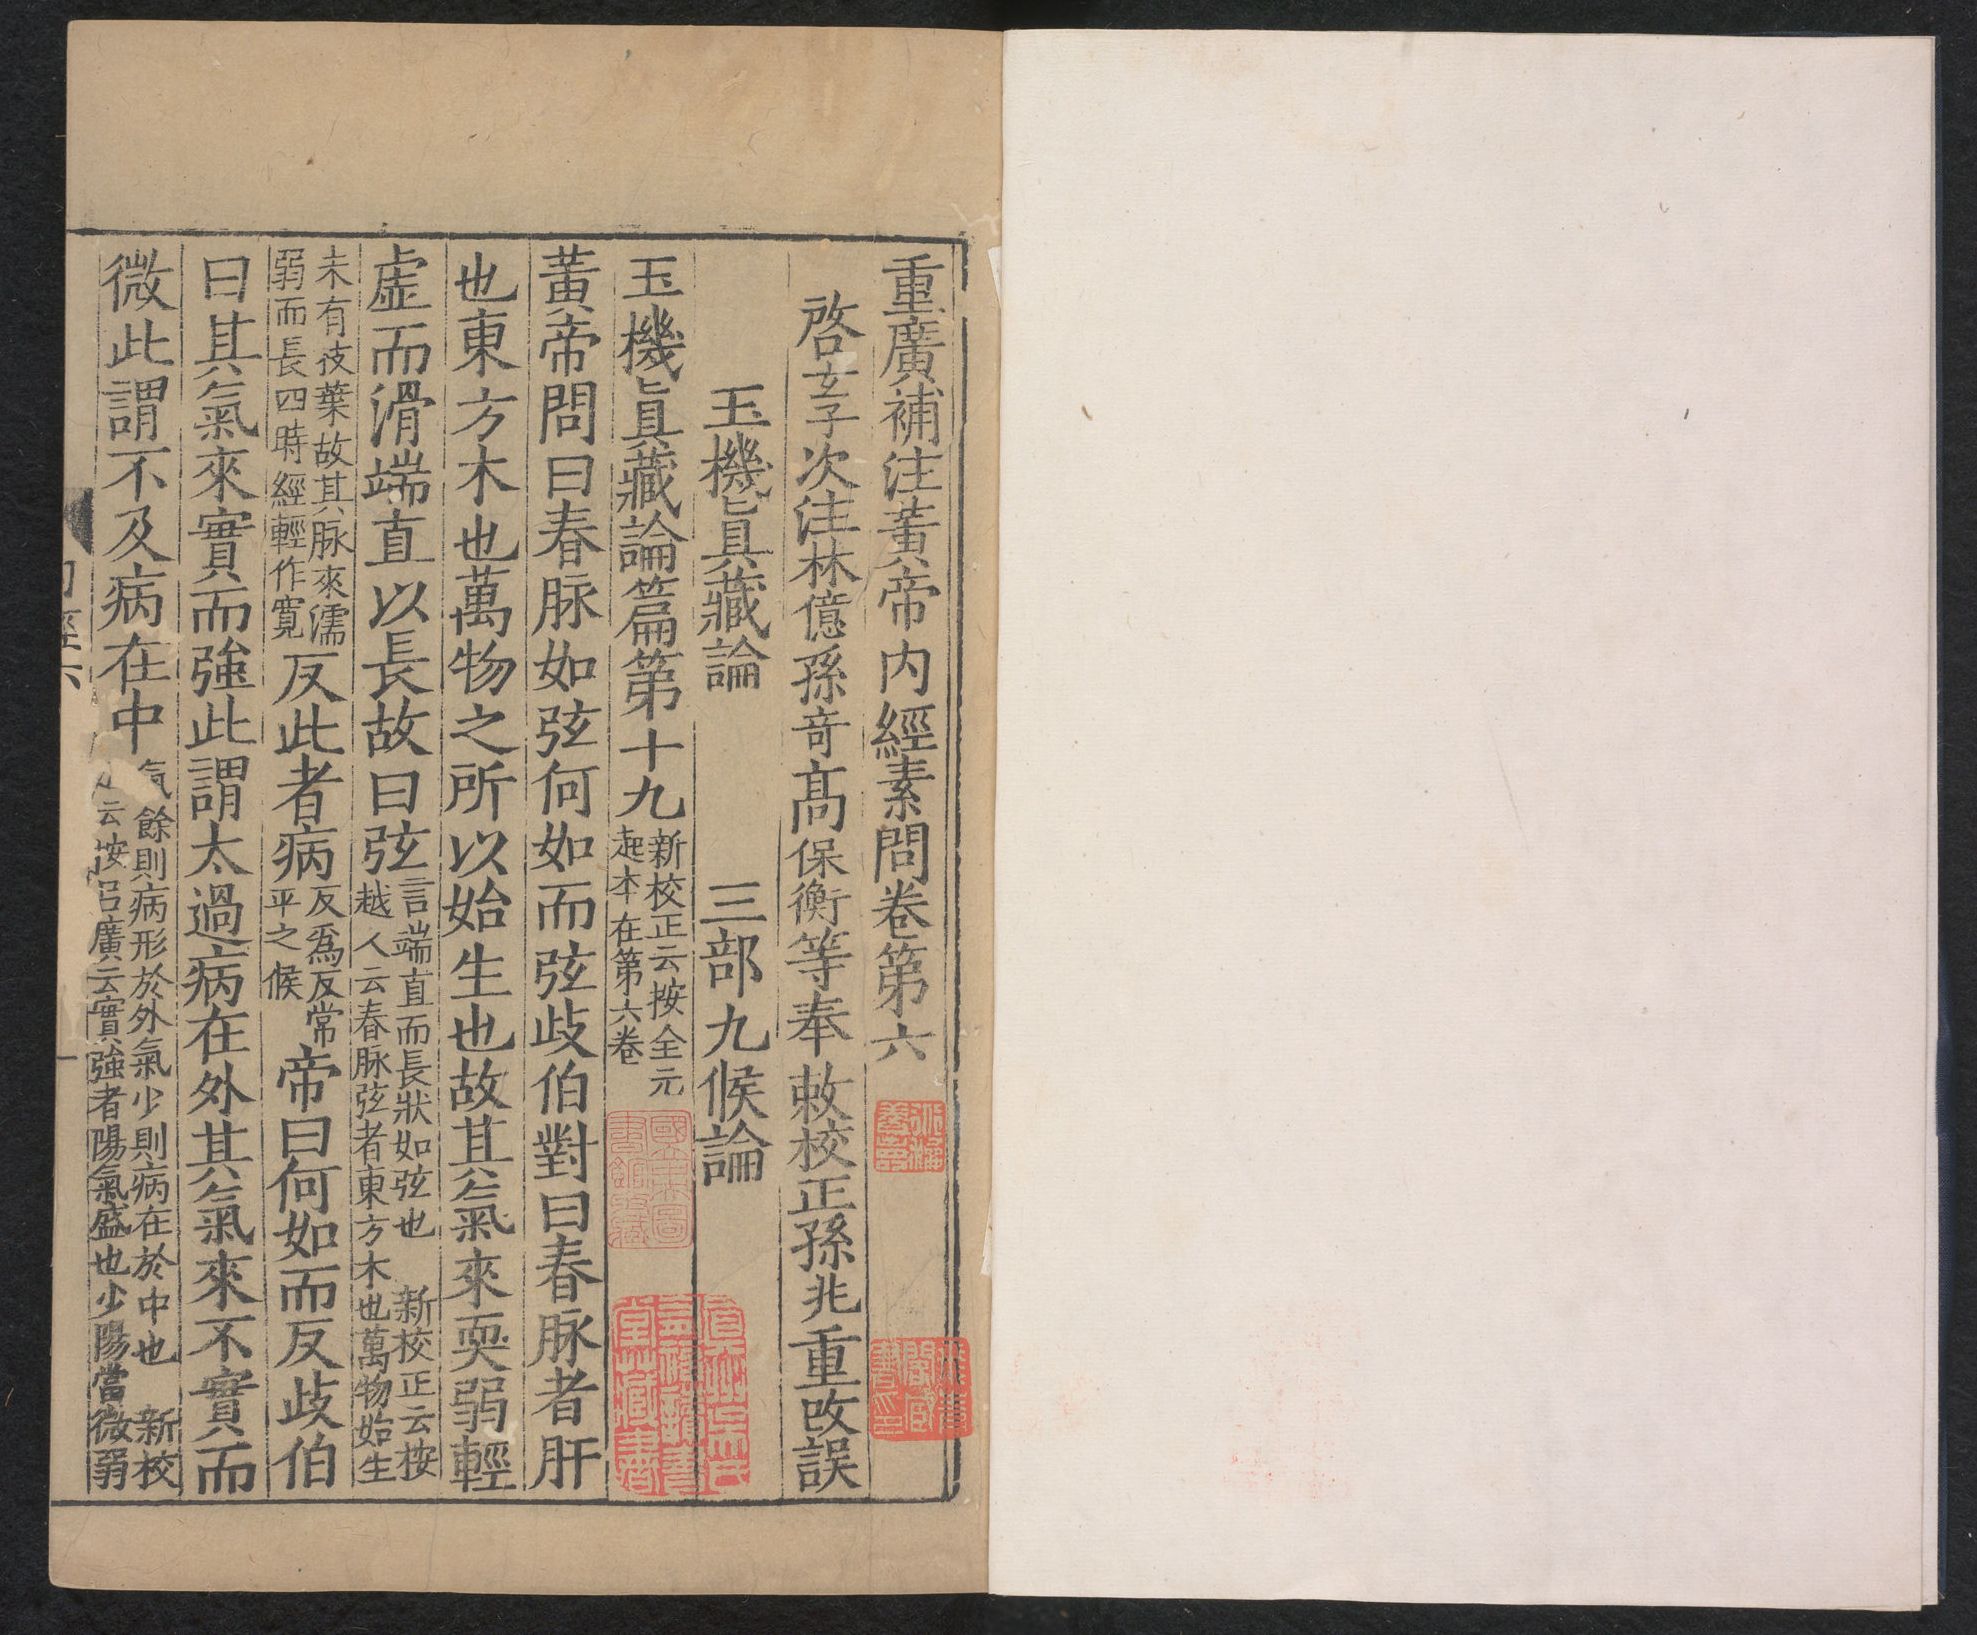 重廣補注黃帝內經素問卷第六
啓玄子次注林億孫竒髙保衡等奉敕校正孫兆重改誤
玉機眞藏論 三部九候論
玉機眞藏論篇第十九
新校正云按全元
起本在第六卷
黃帝問曰春脉如弦何如而弦歧伯對曰春脉者肝
也東方木也萬物之所以始生也故其氣來耎弱輕
虛而滑端直以長故曰弦
言端直而長狀如弦也 新校正云按
越人云春脉弦者東方木也萬物始生
未有枝葉故其脉來濡
弱而長四時經輕作寬
反此者病
反爲反常
平之候
帝曰何如而反歧伯
曰其氣來實而強此謂太過病在外其氣來不實而
微此謂不及病在中
氣餘則病形於外氣少則病在於中也 新校
云按吕廣云實強者陽氣盛也少陽當微弱
國立北平圖
書館所藏